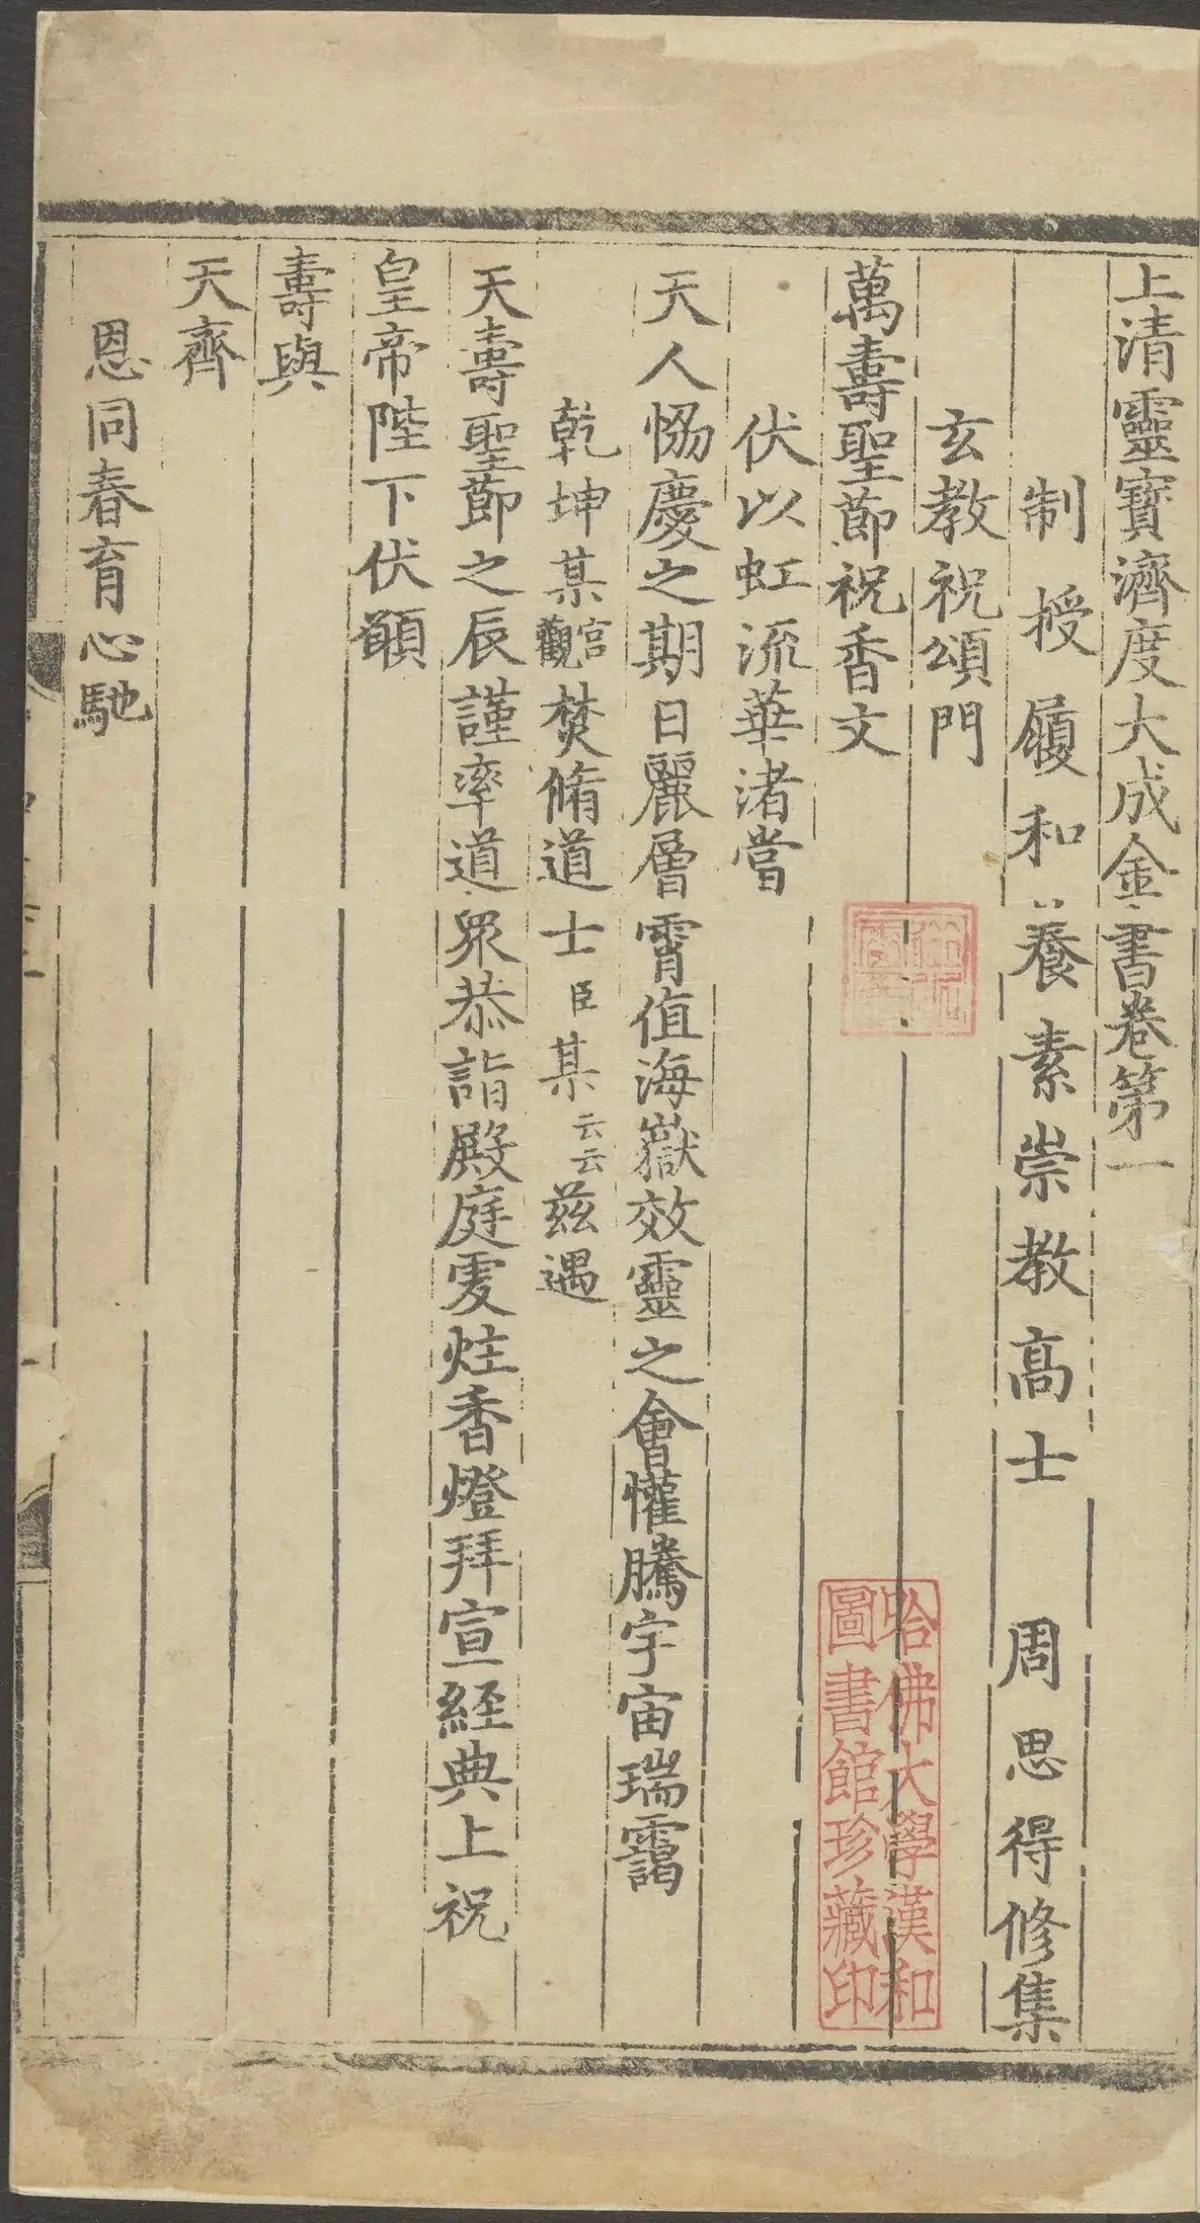 上清靈寶濟度大成金書卷第一
制授履和養素崇教高士 周思得修集
玄教祝頌門
萬壽聖節祝香文
伏以虹流華渚當
天人恊慶之期日麗層霄值海嶽效靈之會懽騰宇宙瑞靄
乾坤某宮觀焚脩道士臣某云云兹遇
天壽聖節之辰謹率道眾恭詣殿庭虔炷香燈拜宣經典上祝
皇帝陛下伏願
壽與
天齊
恩同春育心馳
哈佛大學漢和
圖書館珍藏印